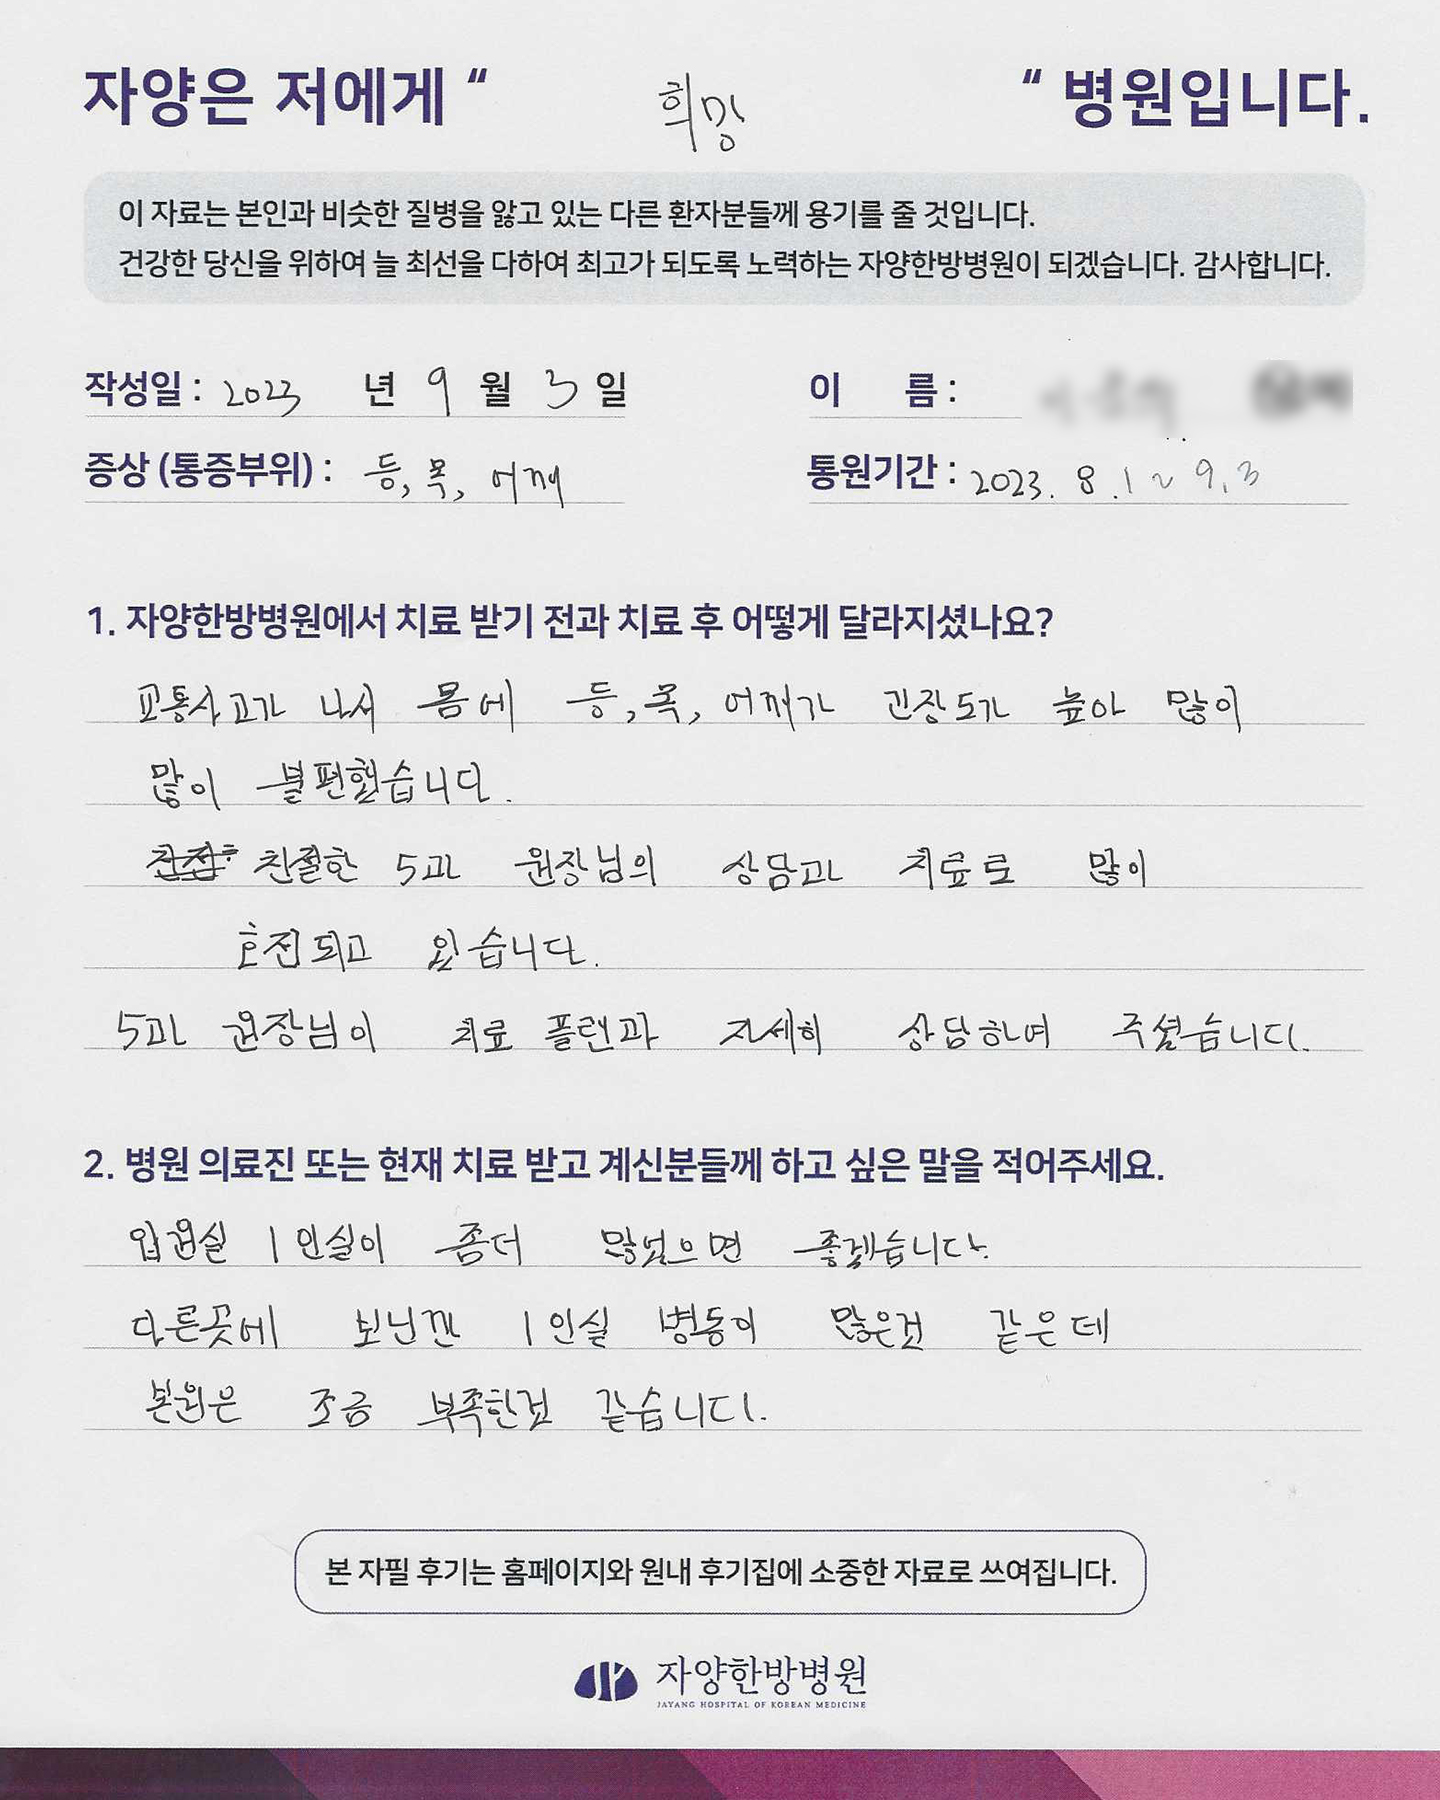 자양은 저에게 “ 희망 “ 병원입니다.
이 자료는 본인과 비슷한 질병을 앓고 있는 다른 환자분들께 용기를 줄 것입니다.
건강한 당신을 위하여 늘 최선을 다하여 최고가 되도록 노력하는 자양한방병원이 되겠습니다. 감사합니다.
작성일 : 2023 년 9 월 3 일 이 름 :
증상 (통증부위) : 등, 목, 어깨 통원기간 : 2023. 8.1 ~ 9.3
1. 자양한방병원에서 치료 받기 전과 치료 후 어떻게 달라지셨나요?
교통사고가 나서 몸에 등, 목, 어깨가 긴장도가 높아 많이
많이 불편했습니다.
친절한 5과 원장님의 상담과 치료로 많이
호전되고 있습니다.
5과 원장님이 치료 플랜과 자세히 상담하여 주셨습니다.
2. 병원 의료진 또는 현재 치료 받고 계신분들께 하고 싶은 말을 적어주세요.
입원실 1인실이 좀더 많았으면 좋겠습니다.
다른곳에 보닌깐 1인실 병동이 많은것 같은데
본원은 조금 부족한것 같습니다.
본 자필 후기는 홈페이지와 원내 후기집에 소중한 자료로 쓰여집니다.
자양한방병원
JAYANG HOSPITAL OF KOREAN MEDICINE